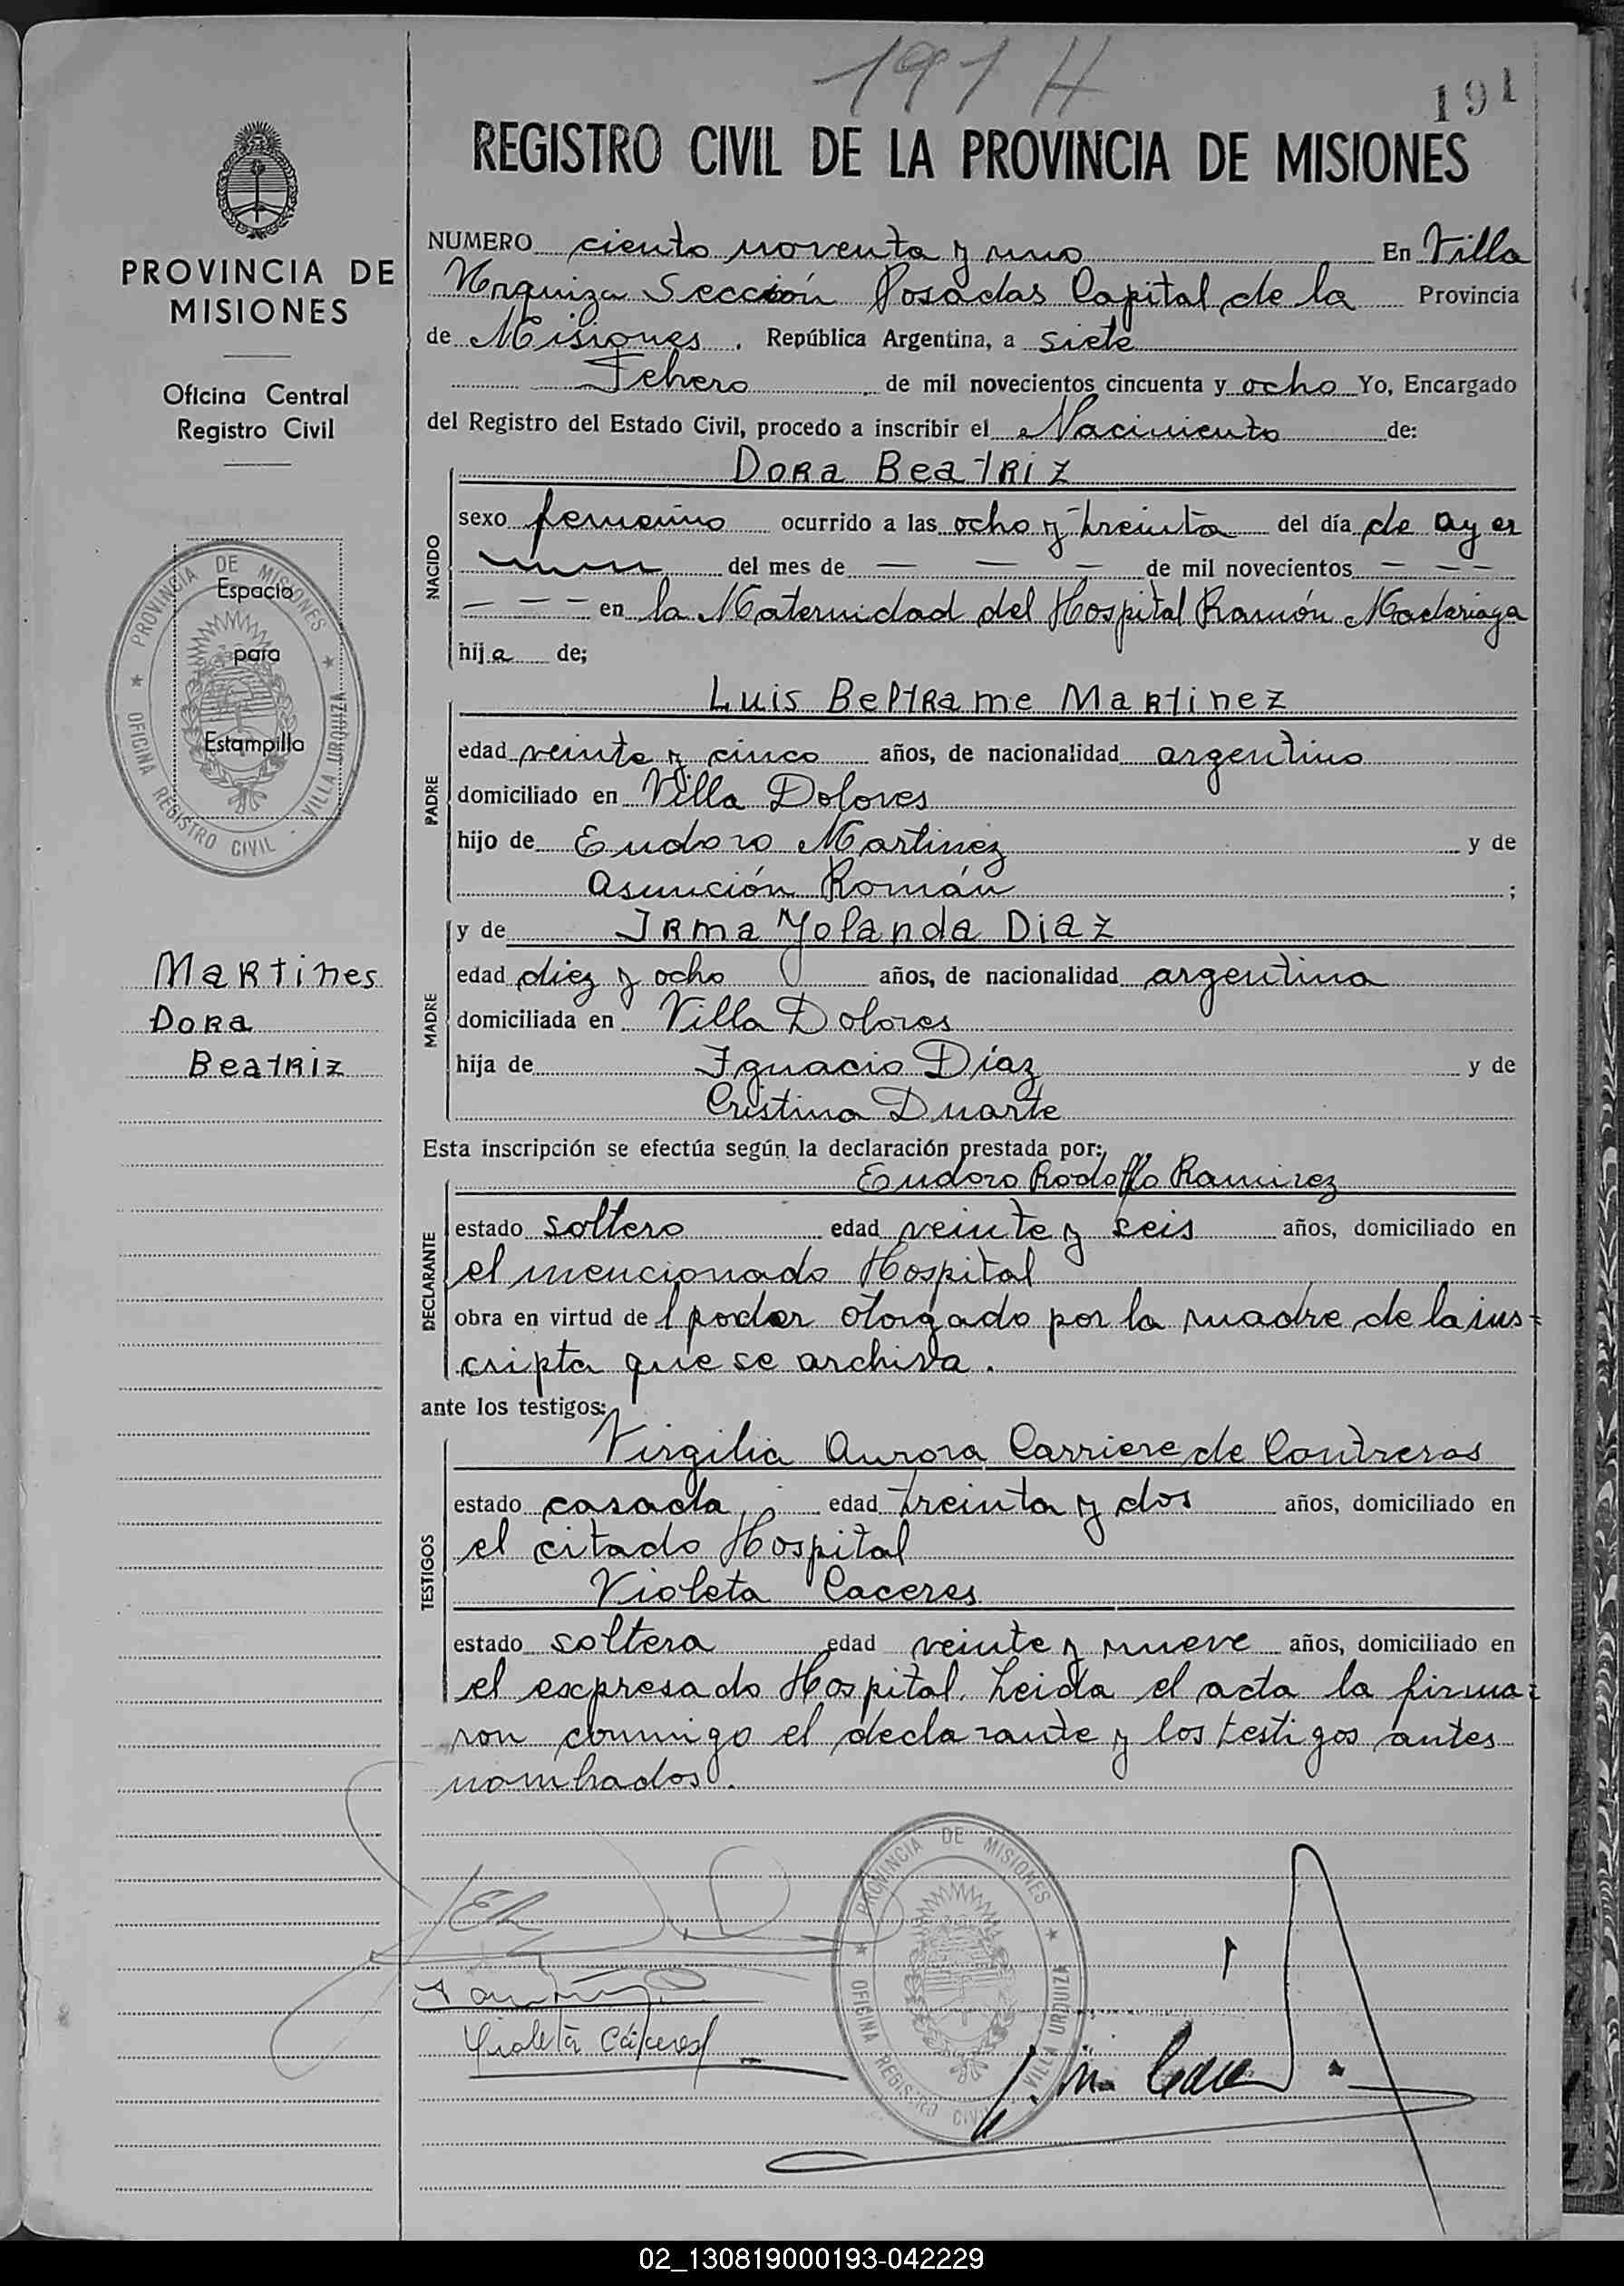 191 H
191
REGISTRO CIVIL DE LA PROVINCIA DE MISIONES
PROVINCIA DE
MISIONES
Oficina Central
Registro Civil
PROVINCIA DE MISIONES
OFICINA REGISTRO CIVIL - VILLA URQUIZA
Espacio
para
Estampilla
Martines
Dora
Beatriz
NUMERO ciento noventa y uno En Villa
Urquiza Sección Posadas Capital de la Provincia
de Misiones. República Argentina, a siete
Febrero de mil novecientos cincuenta y ocho Yo, Encargado
del Registro del Estado Civil, procedo a inscribir el Nacimiento de:
NACIDO
Dora Beatriz
sexo femenino ocurrido a las ocho y treinta del día de ayer
del mes de — — — de mil novecientos — — —
— — — en la Maternidad del Hospital Ramón Madariaga
hija de;
PADRE
Luis Beltrame Martinez
edad veinte y cinco años, de nacionalidad argentino
domiciliado en Villa Dolores
hijo de Eudoro Martinez y de
Asunción Román ;
MADRE
y de Irma Yolanda Diaz
edad diez y ocho años, de nacionalidad argentina
domiciliada en Villa Dolores
hija de Ignacio Díaz y de
Cristina Duarte
Esta inscripción se efectúa según la declaración prestada por:
DECLARANTE
Eudoro Rodolfo Ramirez
estado soltero edad veinte y seis años, domiciliado en
el mencionado Hospital
obra en virtud del poder otorgado por la madre de la ins=
cripta que se archiva.
ante los testigos:
TESTIGOS
Virgilia Aurora Carriere de Contreras
estado casada edad treinta y dos años, domiciliado en
el citado Hospital
Violeta Caceres
estado soltera edad veinte y nueve años, domiciliado en
el expresado Hospital. Leida el acta la firma=
ron conmigo el declarante y los testigos antes
nombrados.
PROVINCIA DE MISIONES
OFICINA REGISTRO CIVIL VILLA URQUIZA
Violeta Cáceres
02_130819000193-042229